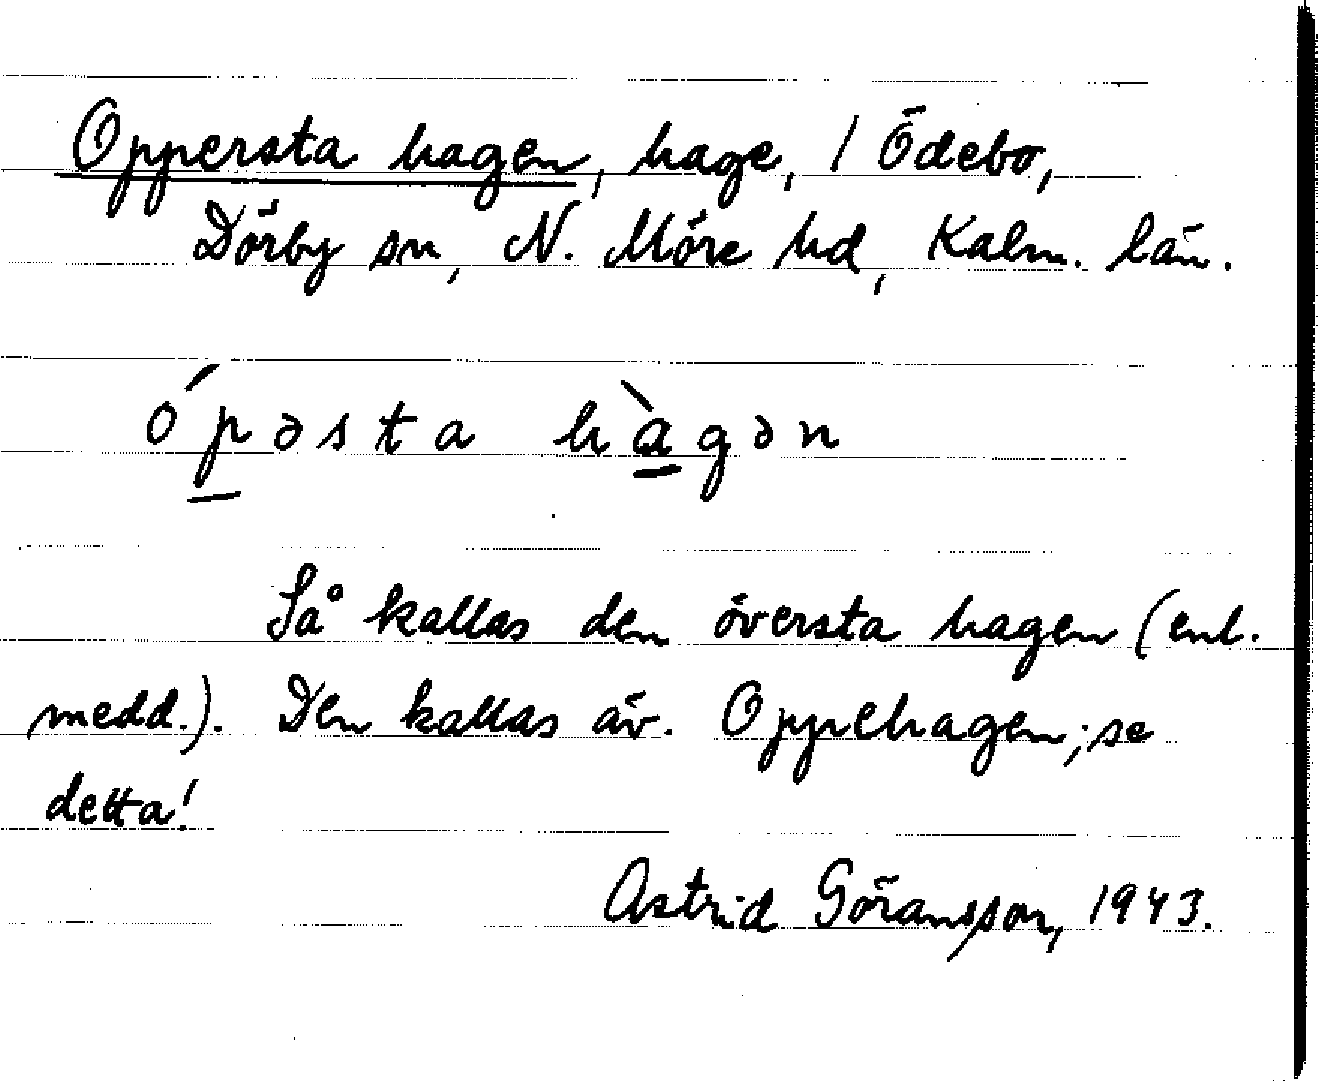 Oppersta hagen, hage, / Ödebo,
Dörby sn, N. Möre hd, Kalm. län.
ópəsta hàgən
Så kallas den översta hagen (enl.
medd.). Den kallas äv. Oppehagen; se
detta!
Astrid Göransson, 1943.